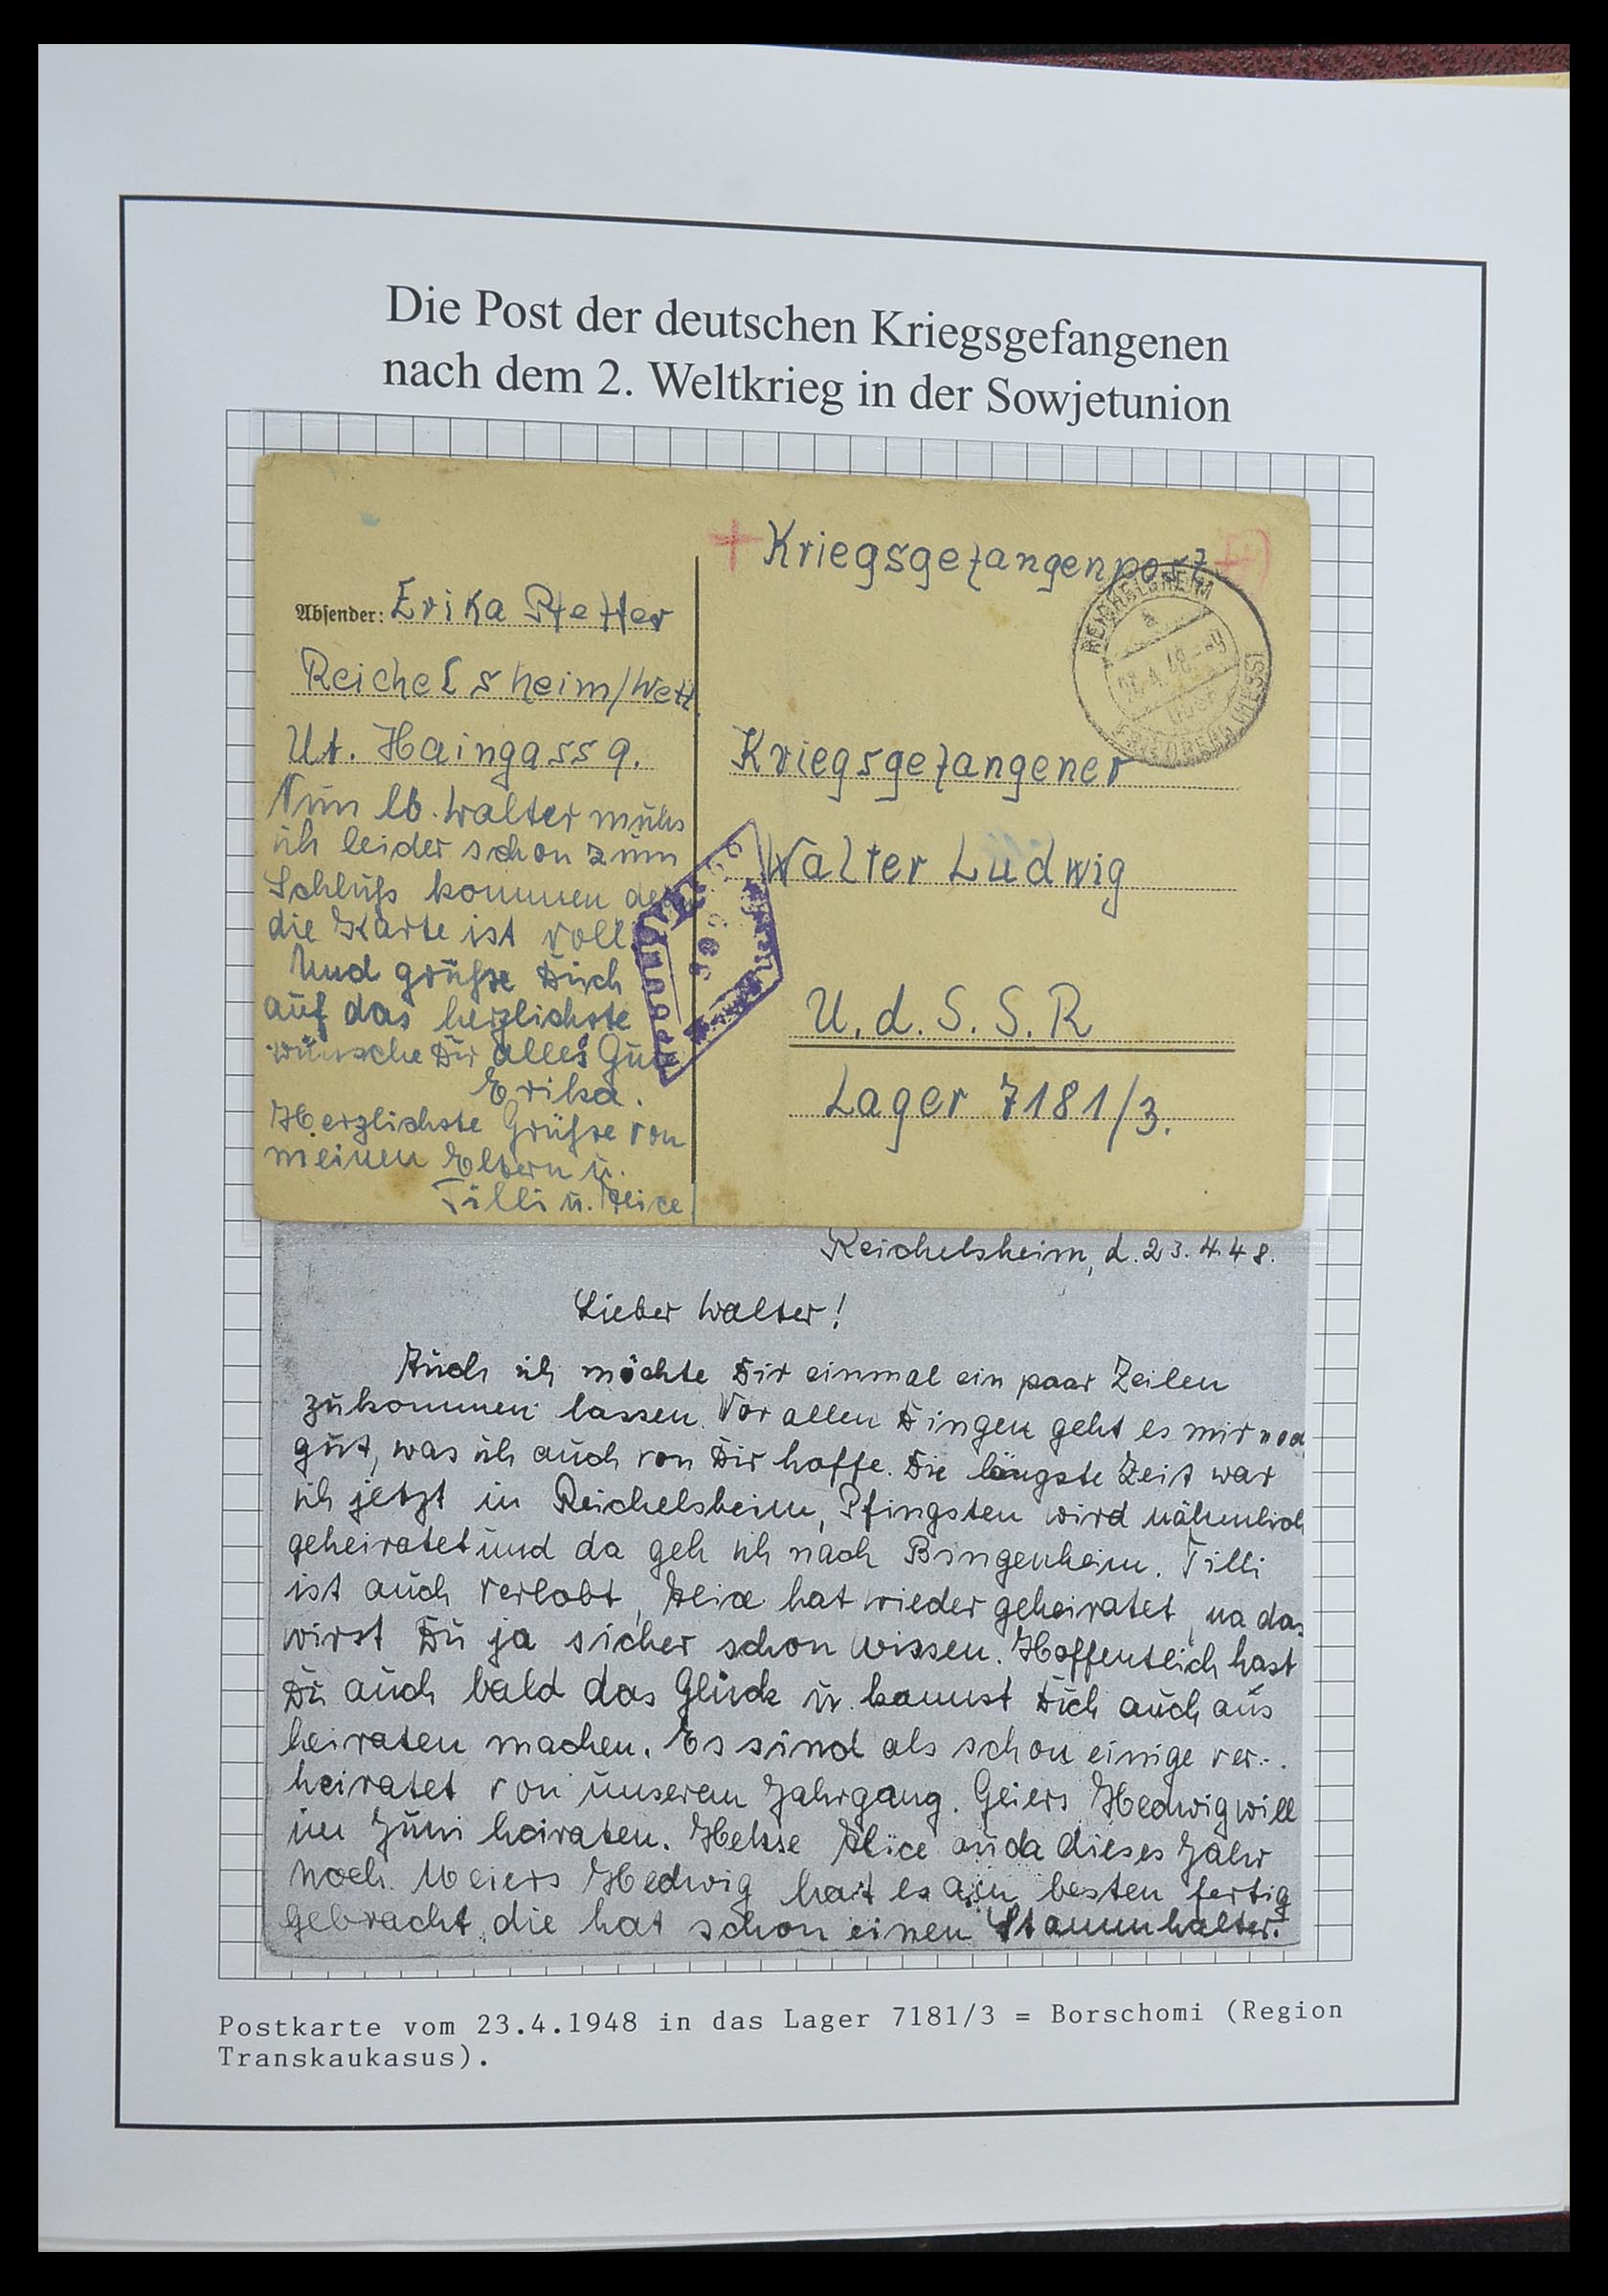 Die Post der deutschen Kriegsgefangenen
nach dem 2. Weltkrieg in der Sowjetunion
+ Kriegsgefangenenpost +
Absender: Erika Pfeffer
Reichelsheim/Wett.
Ut. Haingass 9.
Nun lb. Walter muss
ich leider schon zum
Schluß kommen
die Karte ist voll.
Und grüße Dich
auf das herzlichste
wünsche Dir alles Gut
Erika.
Herzlichste Grüße von
meinen Eltern u.
Tilli u. Alice
REICHELSHEIM
4.48
FRIEDBERG (HESS)
Kriegsgefangener
Walter Ludwig
U.d.S.S.R
Lager 7181/3.
Reichelsheim, d. 23.4.48.
Lieber Walter!
Auch ich möchte Dir einmal ein paar Zeilen
zukommen lassen. Vor allen Dingen geht es mir noch
gut, was ich auch von Dir hoffe. Die längste Zeit war
ich jetzt in Reichelsheim, Pfingsten wird nähmlich
geheiratet und da geh ich nach Bingenheim. Tilli
ist auch verlobt, Alice hat wieder geheiratet, na das
wirst Du ja sicher schon wissen. Hoffentlich hast
Du auch bald das Glück u. kannst Dich auch ans
heiraten machen. Es sind als schon einige ver-
heiratet von unserem Jahrgang. Geiers Hedwig will
im Juni heiraten. Alice auch dieses Jahr
noch. Meiers Hedwig hat es am besten fertig
gebracht, die hat schon einen Stammhalter.
Postkarte vom 23.4.1948 in das Lager 7181/3 = Borschomi (Region
Transkaukasus).